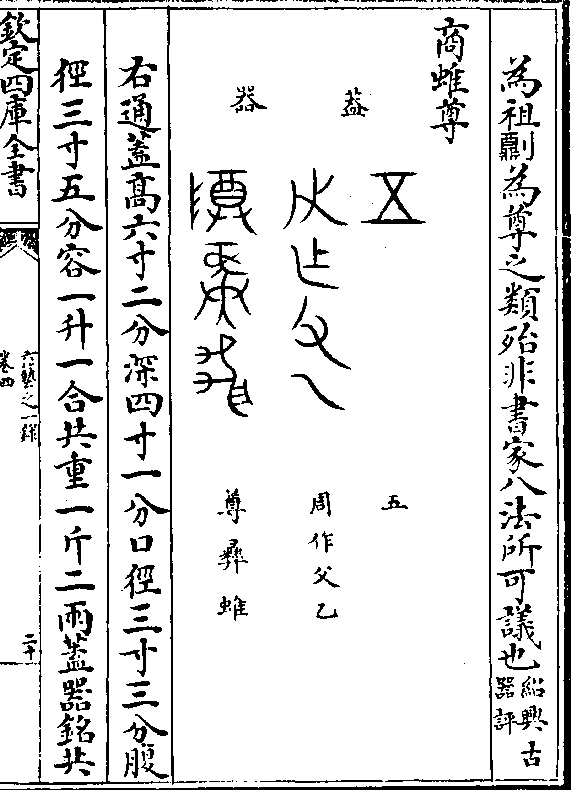 為祖剽為尊之類殆非書家八法所可議也紹興古器評
商蜼尊
蓋
器
五
周作父乙
尊彝蜼
右通蓋高六寸二分深四寸一分口徑三寸三分腹
徑三寸五分容一升一合共重一斤二兩蓋器銘共
欽定四庫全書
六藝之一錄
卷四
二十